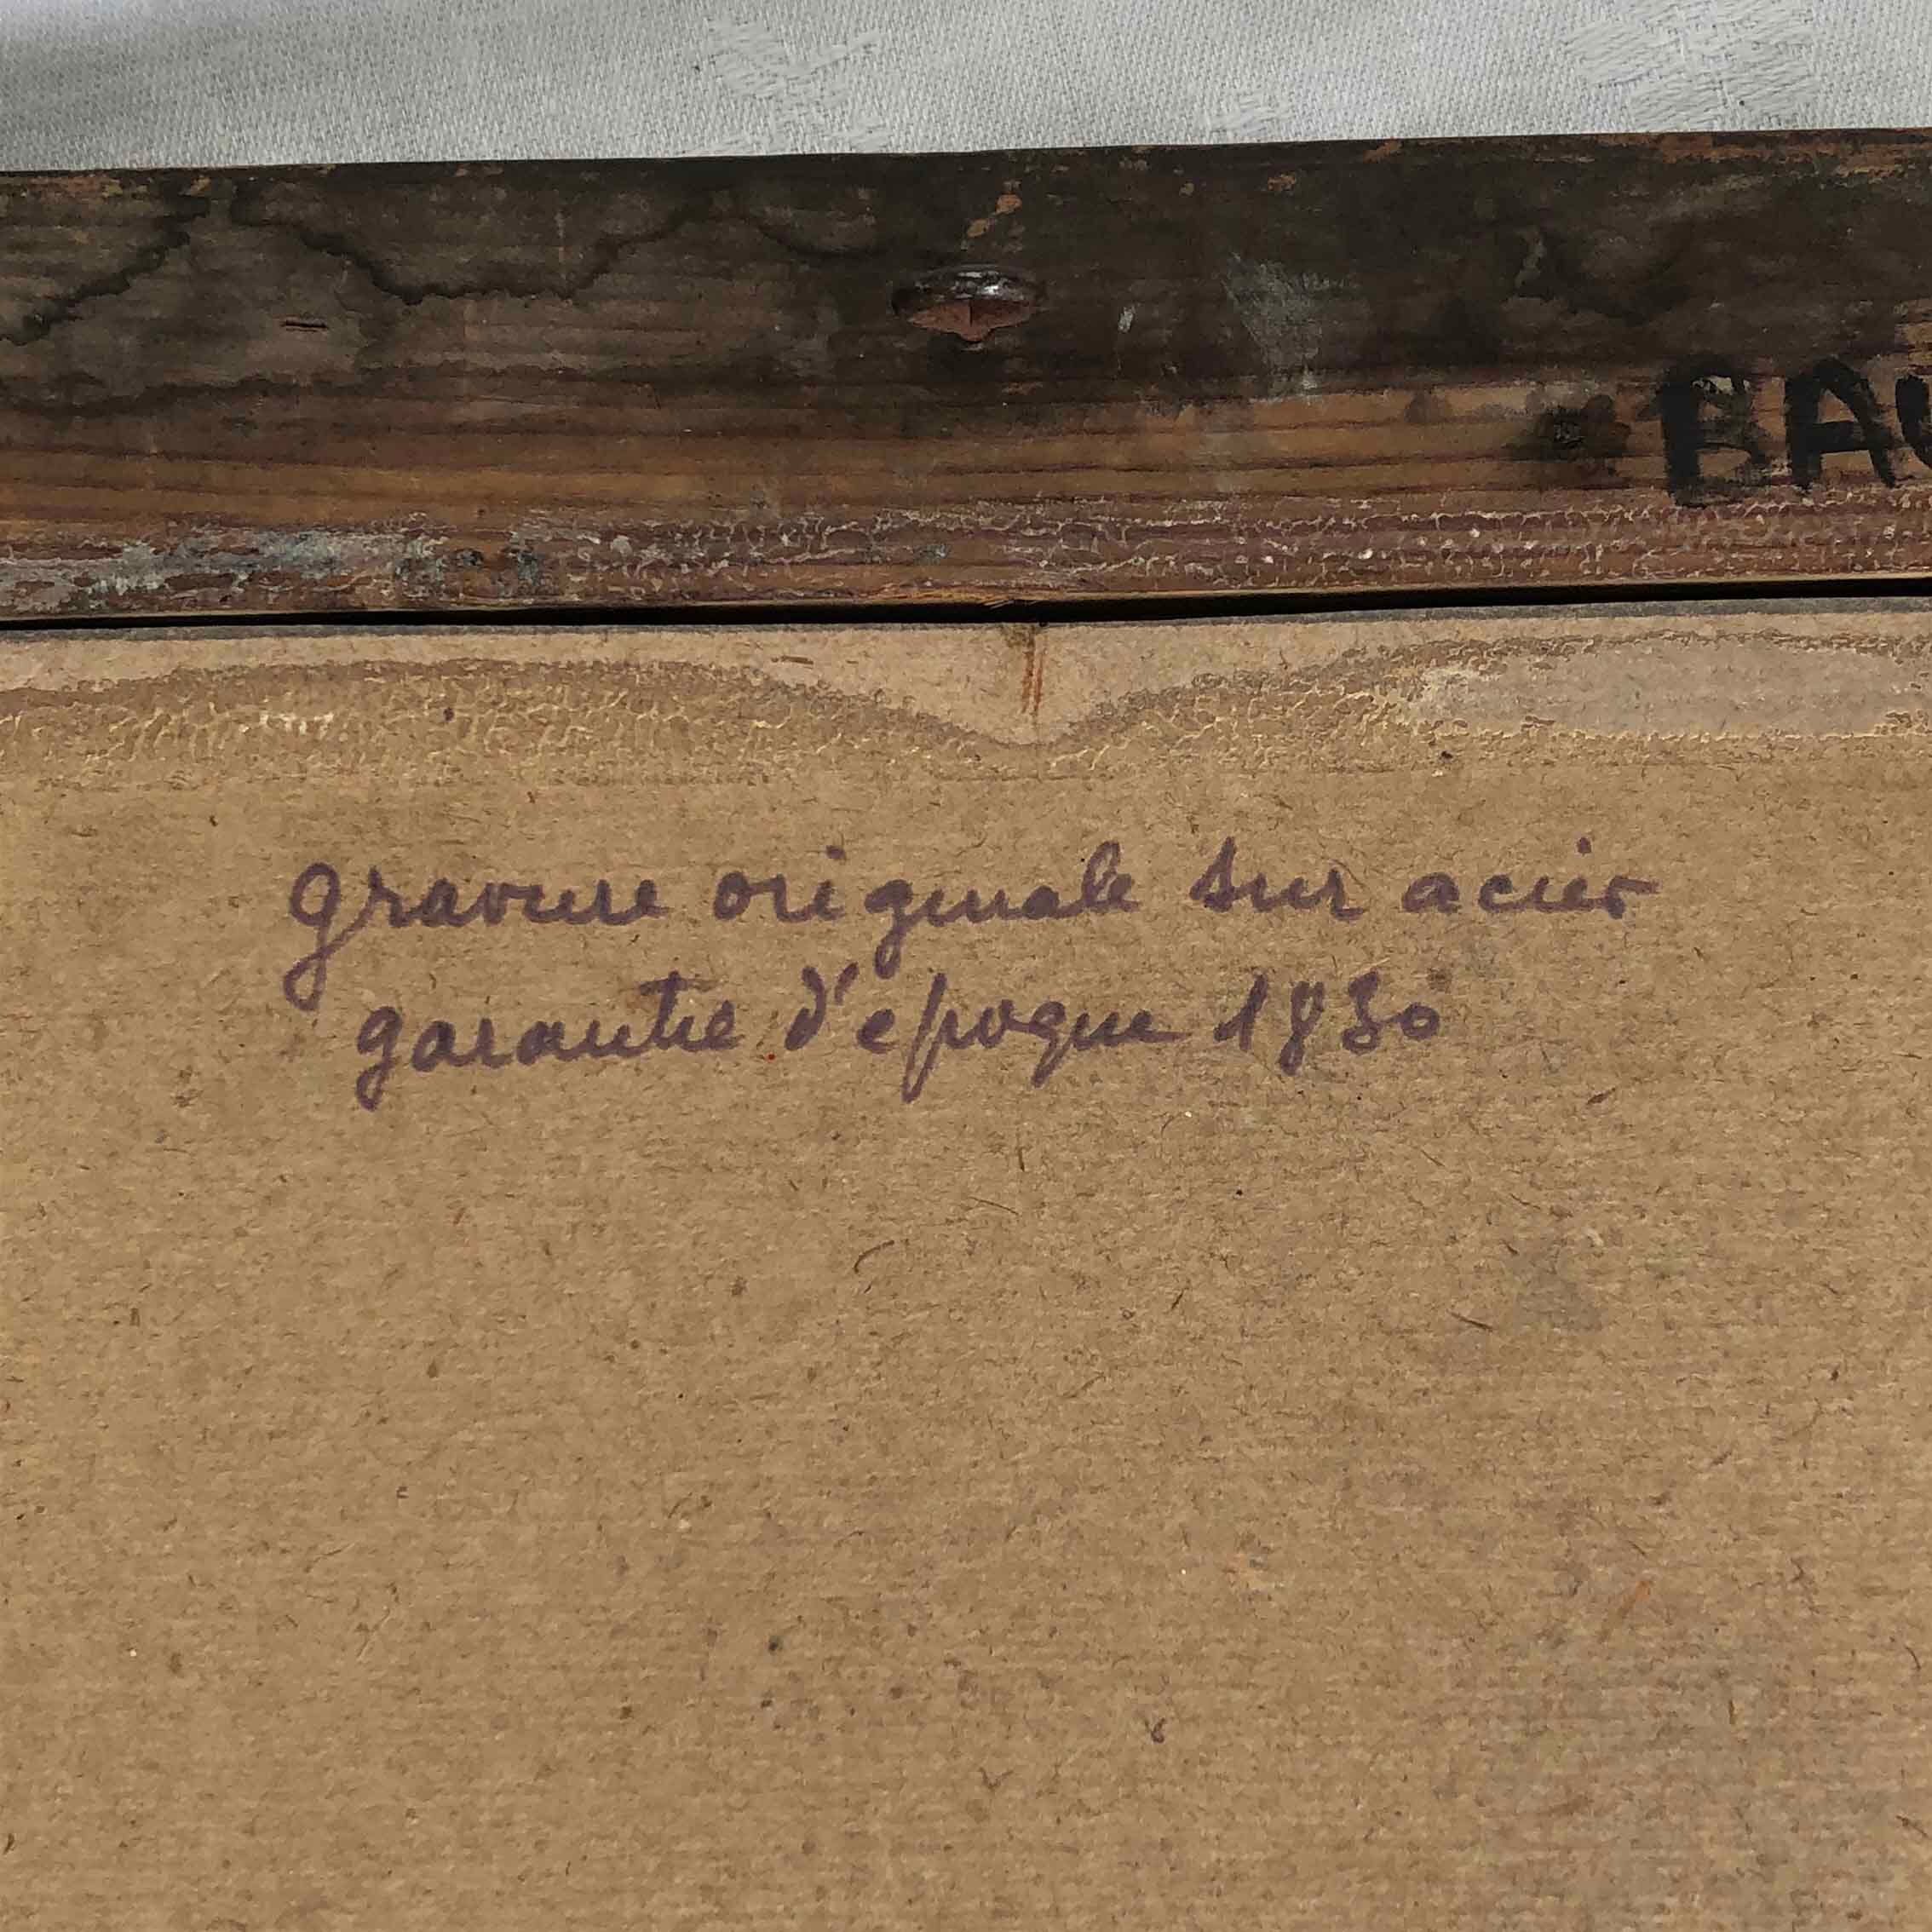 BAU
gravure originale sur acier
garantie d'époque 1830